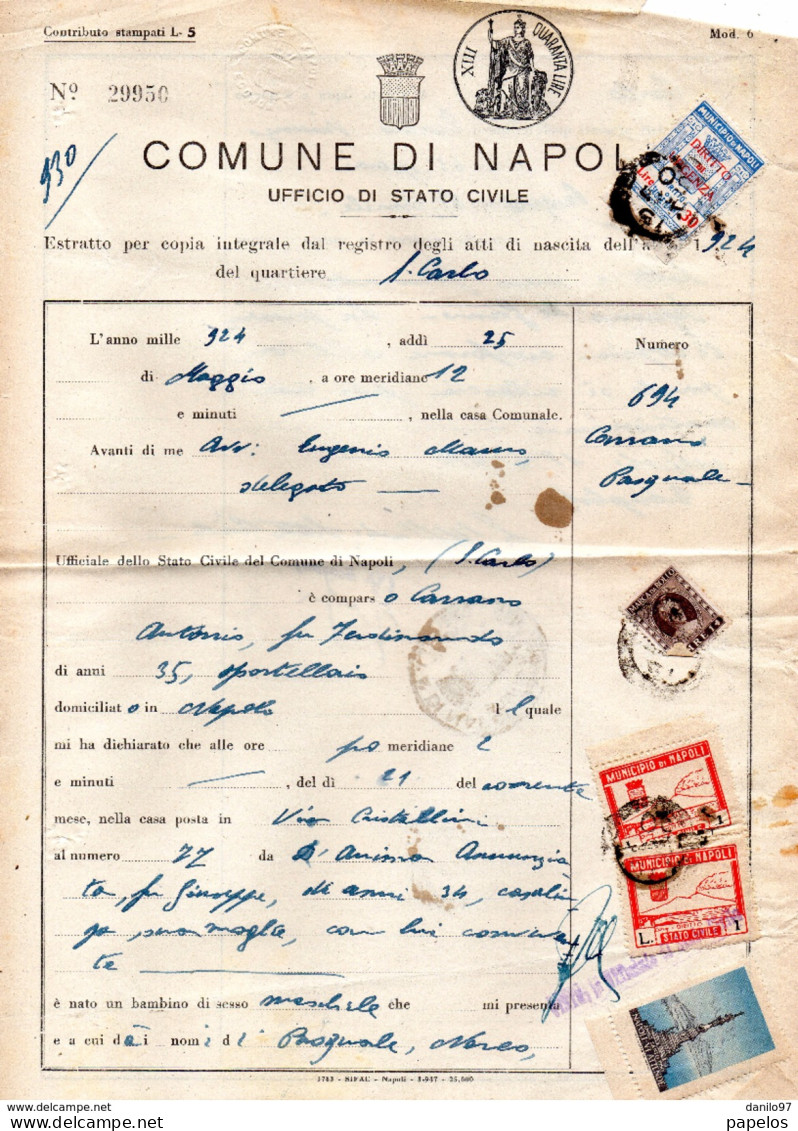 Contributo stampati L. 5
Mod. 6
XIII QUARANTA LIRE
Nº 29950
930
COMUNE DI NAPOLI
UFFICIO DI STATO CIVILE
MUNICIPIO DI NAPOLI
DIRITTO
Lire 30
Estratto per copia integrale dal registro degli atti di nascita dell'a 1.924
del quartiere S. Carlo
L'anno mille 924, addì 25
di Maggio, a ore meridiane 12
e minuti —, nella casa Comunale.
Avanti di me Avv: Eugenio
delegato —
Numero
694
Carrano
Pasquale
Ufficiale dello Stato Civile del Comune di Napoli, (S. Carlo)
è compars o Carrano
Antonio, fu Ferdinando
di anni 35, sportellaio
domiciliat o in Napoli il quale
mi ha dichiarato che alle ore po meridiane 2
e minuti —, del dì 21 del corrente
mese, nella casa posta in Via Cristallini
al numero 77 da D'Anima Annunzia
ta, fu Giuseppe, di anni 34, casalin
ga, sua moglie, con lui conviven
te —
è nato un bambino di sesso maschile che mi presenta
e a cui dà i nomi di Pasquale,
MUNICIPIO DI NAPOLI
L. 1
MUNICIPIO DI NAPOLI
DIRITTO
L. STATO CIVILE 1
1783 - SIPAL - Napoli - 3-947 - 25,000
danilo97
papelos